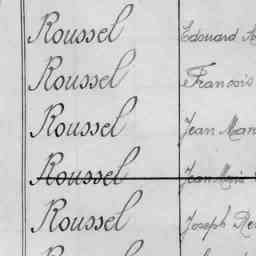 Roussel Edouard
Roussel François
Roussel Jean Mar
Roussel Jean Marie
Roussel Joseph Re